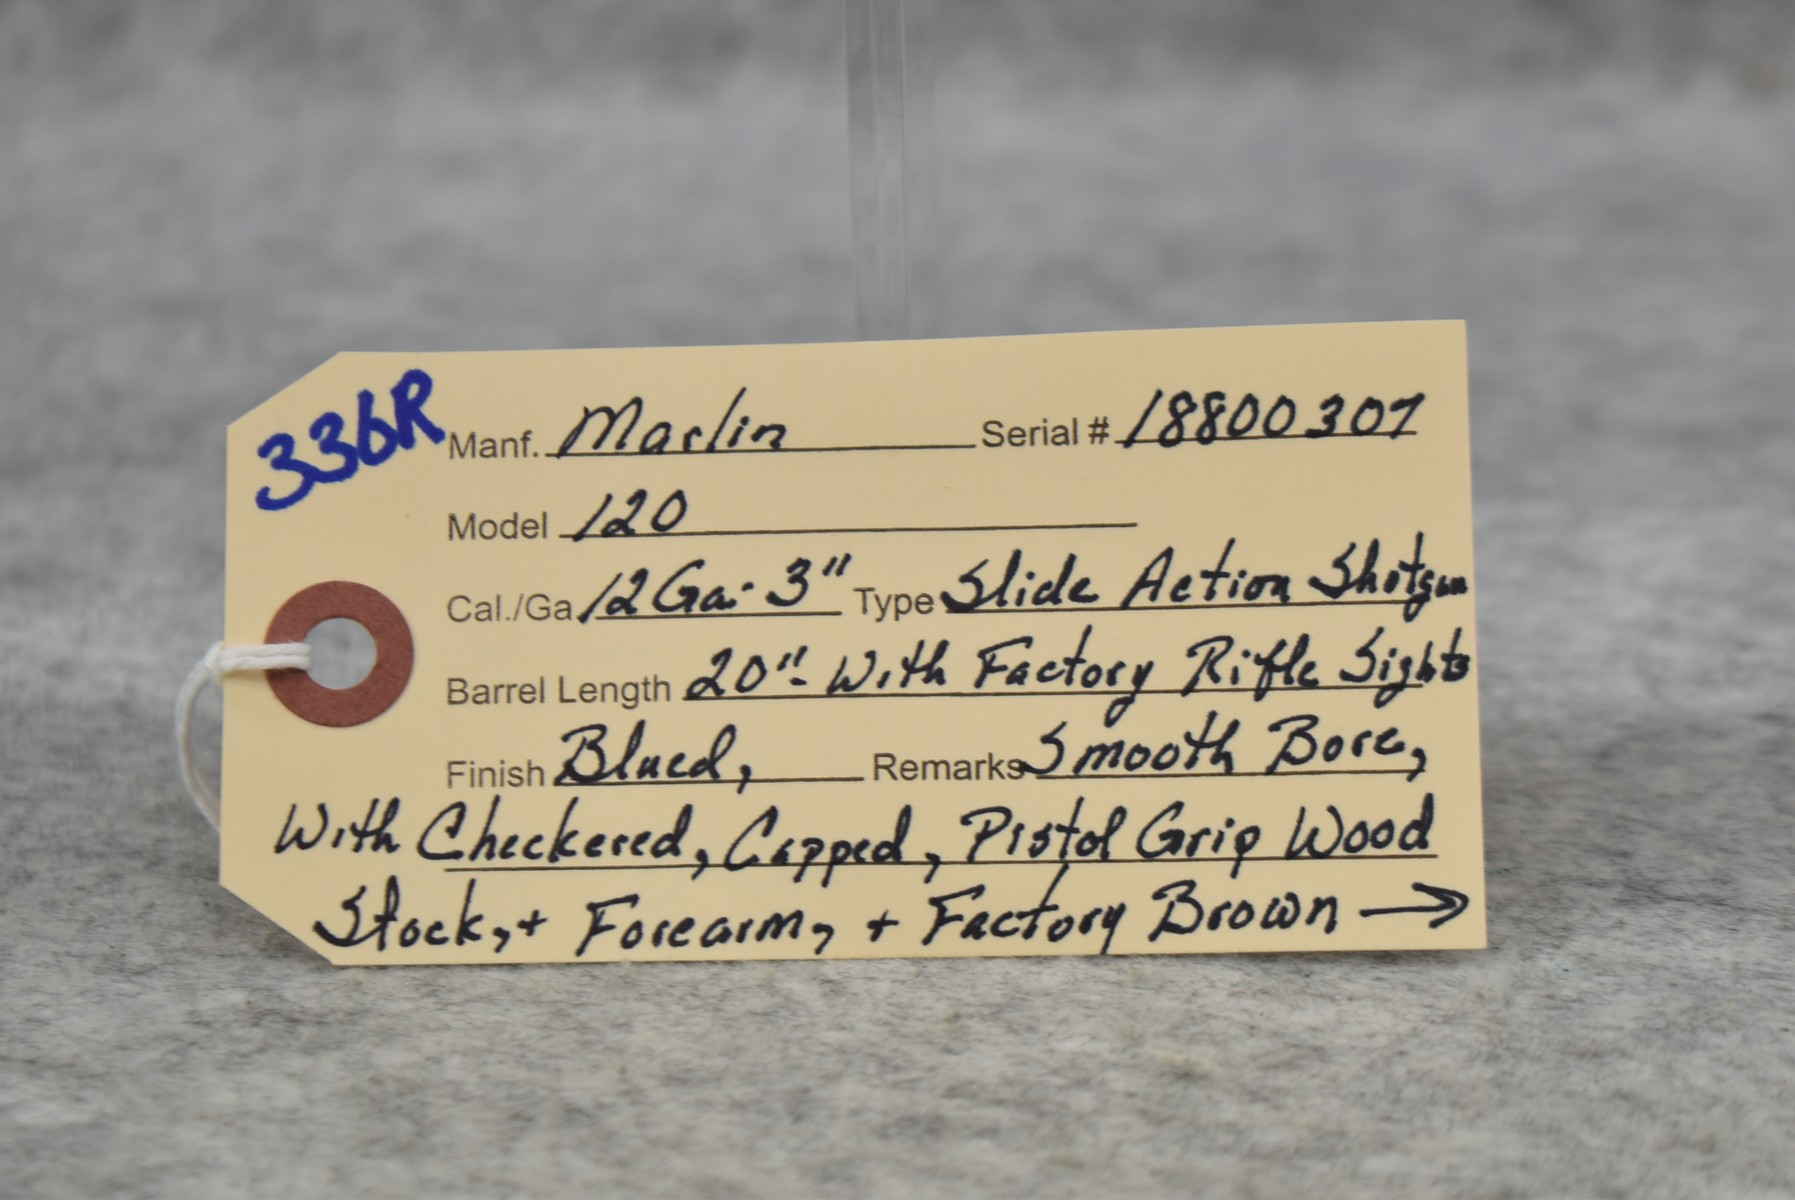 336R
Manf. Marlin Serial # 18800307
Model 120
Cal./Ga. 12 Ga. 3" Type Slide Action Shotgun
Barrel Length 20"- With Factory Rifle Sights
Finish Blued, Remarks Smooth Bore,
With Checkered, Capped, Pistol Grip Wood
Stock, + Forearm, + Factory Brown →